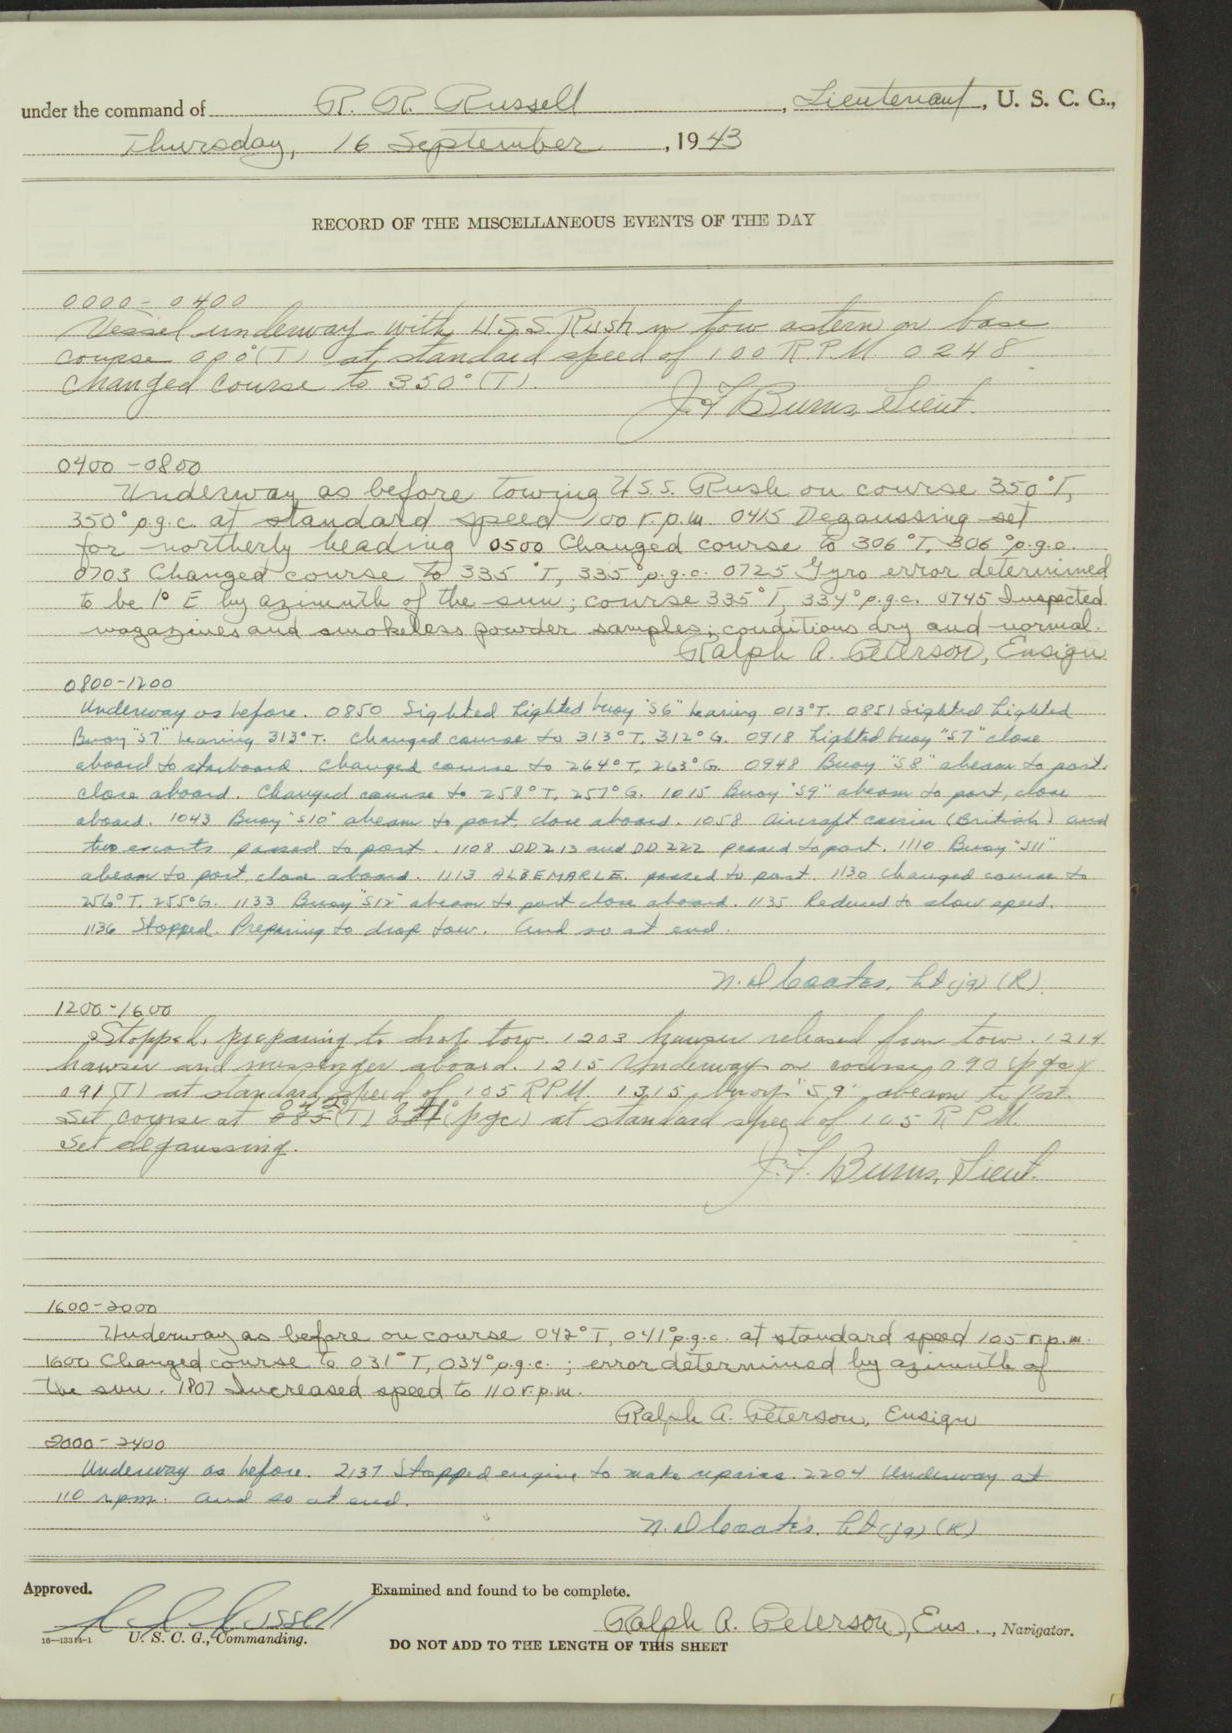 under the command of R. R. Russell, Lieutenant, U. S. C. G.,
Thursday, 16 September, 1943
RECORD OF THE MISCELLANEOUS EVENTS OF THE DAY
0000 - 0400
Vessel underway with U S S Rush in tow astern on base
course 000°(T) at standard speed of 100 R P M 0248
changed course to 350°(T).
J. F. Burns, Lieut.
0400 - 0800
Underway as before towing U.S.S. Rush on course 350°T,
350° p.g.c. at standard speed 100 r.p.m. 0415 Degaussing set
for northerly heading 0500 Changed course to 306°T, 306° p.g.c.
0703 Changed course to 335°T, 335° p.g.c. 0725 Gyro error determined
to be 1° E by azimuth of the sun; course 335°T, 334° p.g.c. 0745 Inspected
magazines and smokeless powder samples; conditions dry and normal.
Ralph A. Peterson, Ensign
0800-1200
Underway as before. 0850 Sighted lighted buoy "S6" bearing 013°T. 0851 Sighted lighted
Buoy "S7" bearing 313°T. Changed course to 313°T, 312°G. 0918 Lighted buoy "S7" close
aboard to starboard. Changed course to 264°T, 263°G. 0948 Buoy "S8" abeam to port,
close aboard. Changed course to 258°T, 257°G. 1015 Buoy "S9" abeam to port, close
aboard. 1043 Buoy "S10" abeam to port, close aboard. 1058 Aircraft carrier (British) and
two escorts passed to port. 1108 DD213 and DD222 passed to port. 1110 Buoy "S11"
abeam to port close aboard. 1113 ALBEMARLE passed to port. 1130 Changed course to
256°T, 255°G. 1133 Buoy "S12" abeam to port close aboard. 1135 Reduced to slow speed.
1136 Stopped. Preparing to drop tow. And so at end.
N. D. Coates, Lt (jg) (R)
1200-1600
Stopped, preparing to drop tow. 1203 hawser released from tow. 1214
hawser and messenger aboard. 1215 Underway on course 090 (pgc)
091 (T) at standard speed of 105 R P M. 1315 buoy "S9" abeam to port.
Set course at 042° (T) 041° (pgc) at standard speed of 105 R P M.
Set degaussing.
J. F. Burns, Lieut.
1600-2000
Underway as before on course 042°T, 041° p.g.c. at standard speed 105 r.p.m.
1600 Changed course to 031°T, 034° p.g.c.; error determined by azimuth of
the sun. 1807 Increased speed to 110 r.p.m.
Ralph A. Peterson, Ensign
2000-2400
Underway as before. 2137 Stopped engine to make repairs. 2204 Underway at
110 r.p.m. And so at end.
N. D. Coates, Lt (jg) (R)
Approved. Examined and found to be complete.
R R Russell Ralph A. Peterson, Ens., Navigator.
16—13314-1 U. S. C. G., Commanding.
DO NOT ADD TO THE LENGTH OF THIS SHEET